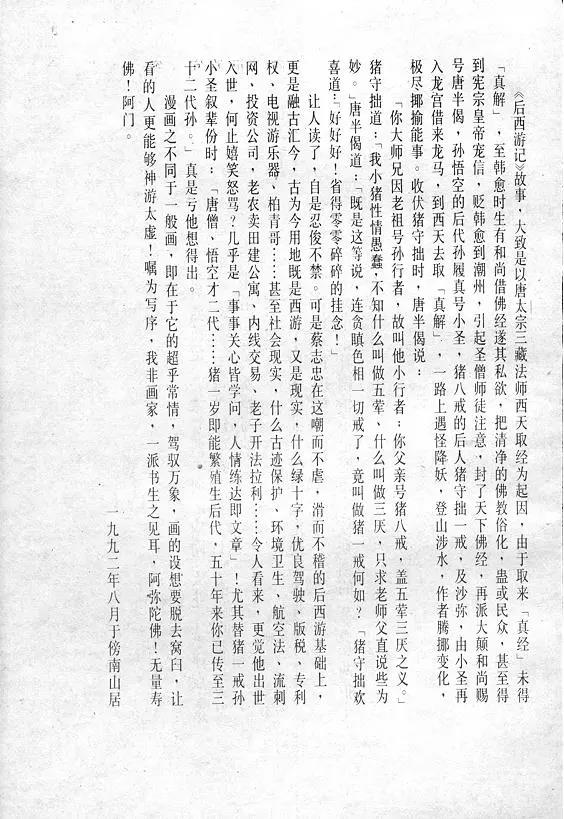 《后西游记》故事，大致是以唐太宗三藏法师西天取经为起因，由于取来「真经」未得
「真解」，至韩愈时生有和尚借佛经遂其私欲，把清净的佛教俗化，蛊或民众，甚至得
到宪宗皇帝宠信，贬韩愈到潮州，引起圣僧师徒注意，封了天下佛经，再派大颠和尚赐
号唐半偈，孙悟空的后代孙履真号小圣，猪八戒的后人猪守拙一戒，及沙弥，由小圣再
入龙宫借来龙马，到西天去取「真解」，一路上遇怪降妖，登山涉水，作者腾挪变化，
极尽揶揄能事。收伏猪守拙时，唐半偈说：
「你大师兄因老祖号孙行者，故叫他小行者；你父亲号猪八戒，盖五荤三厌之义。」
猪守拙道：「我小猪性情愚蠢，不知什么叫做五荤，什么叫做三厌，只求老师父直说些为
妙。」唐半偈道：「既是这等说，连贪瞋色相一切戒了，竟叫做猪一戒何如？「猪守拙欢
喜道：「好好好！省得零零碎碎的挂念！」
让人读了，自是忍俊不禁。可是蔡志忠在这嘲而不虐，滑而不稽的后西游基础上，
更是融古汇今，古为今用地既是西游，又是现实，什么绿十字，优良驾驶、版税、专利
权、电视游乐器、柏青哥……甚至社会现实，什么古迹保护、环境卫生、航空法、流刺
网，投资公司，老农卖田建公寓，内线交易、老子开法拉利……令人看来，更觉他出世
入世，何止嬉笑怒骂？几乎是「事事关心皆学问，人情练达即文章」！尤其替猪一戒孙
小圣叙辈份时：「唐僧、悟空才二代……猪一岁即能繁殖生后代，五十年来你已传至三
十二代孙。」真是亏他想得出。
漫画之不同于一般画，即在于它的超乎常情，驾驭万象，画的设想要脱去窝臼，让
看的人更能够神游太虚！嘱为写序，我非画家，一派书生之见耳，阿弥陀佛！无量寿
佛！阿门。
一九九二年八月于傍南山居